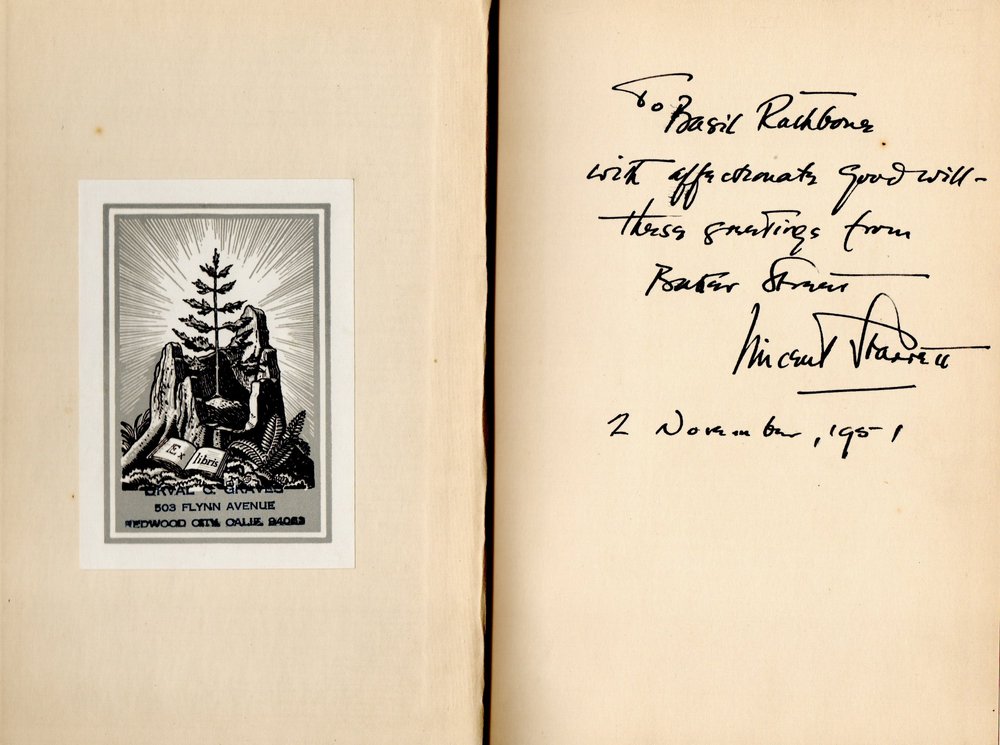 Ex
libris
ORVAL C. GRAVES
503 FLYNN AVENUE
REDWOOD CITY, CALIF. 94063
To Basil Rathbone
with affectionate good will—
these greetings from
Baker Street
Vincent Starrett
2 November, 1951